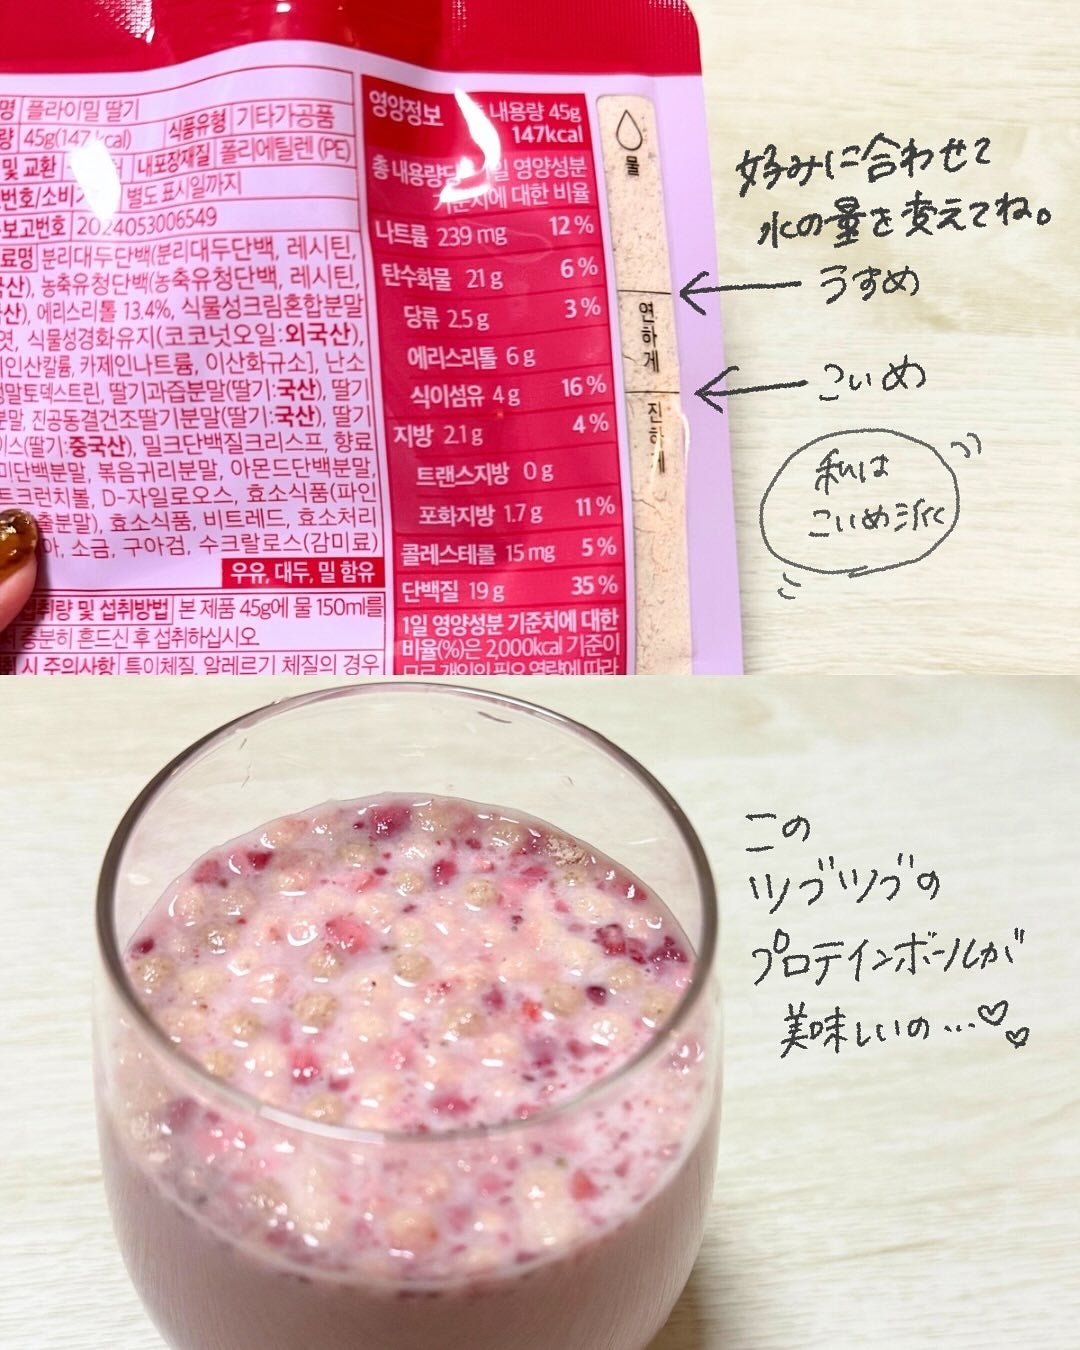 플라이밀 딸기
45g(147 kcal) 식품유형 기타가공품
및 교환 내포장재질 폴리에틸렌 (PE)
번호/소비 별도 표시일까지
보고번호 2024053006549
료명 분리대두단백(분리대두단백, 레시틴,
국산), 농축유청단백(농축유청단백, 레시틴,
산), 에리스리톨 13.4%, 식물성크림혼합분말
엿, 식물성경화유지(코코넛오일:외국산),
인산칼륨, 카제인나트륨, 이산화규소], 난소
말토덱스트린, 딸기과즙분말(딸기:국산), 딸기
분말, 진공동결건조딸기분말(딸기:국산), 딸기
이스(딸기:중국산), 밀크단백질크리스프, 향료
미단백분말, 볶음귀리분말, 아몬드단백분말,
트크런치볼, D-자일로오스, 효소식품(파인
출분말), 효소식품, 비트레드, 효소처리
아, 소금, 구아검, 수크랄로스(감미료)
우유, 대두, 밀 함유
섭취량 및 섭취방법 본 제품 45g에 물 150ml를
충분히 흔드신 후 섭취하십시오
취 시 주의사항 특이체질, 알레르기 체질의 경우
영양정보 내용량 45g
147kcal
총 내용량당 1일 영양성분
기준치에 대한 비율
나트륨 239 mg 12 %
탄수화물 21 g 6 %
당류 2.5 g 3 %
에리스리톨 6 g
식이섬유 4 g 16 %
지방 2.1 g 4 %
트랜스지방 0 g
포화지방 1.7 g 11 %
콜레스테롤 15 mg 5 %
단백질 19 g 35 %
1일 영양성분 기준치에 대한
비율(%)은 2,000kcal 기준이
므로 개인의 필요 열량에 따라
물
연하게
진하게
好みに合わせて
水の量を変えてね。
うすめ
こいめ
私は
こいめ派
この
ツブツブの
プロテインボールが
美味しいの…♡♡